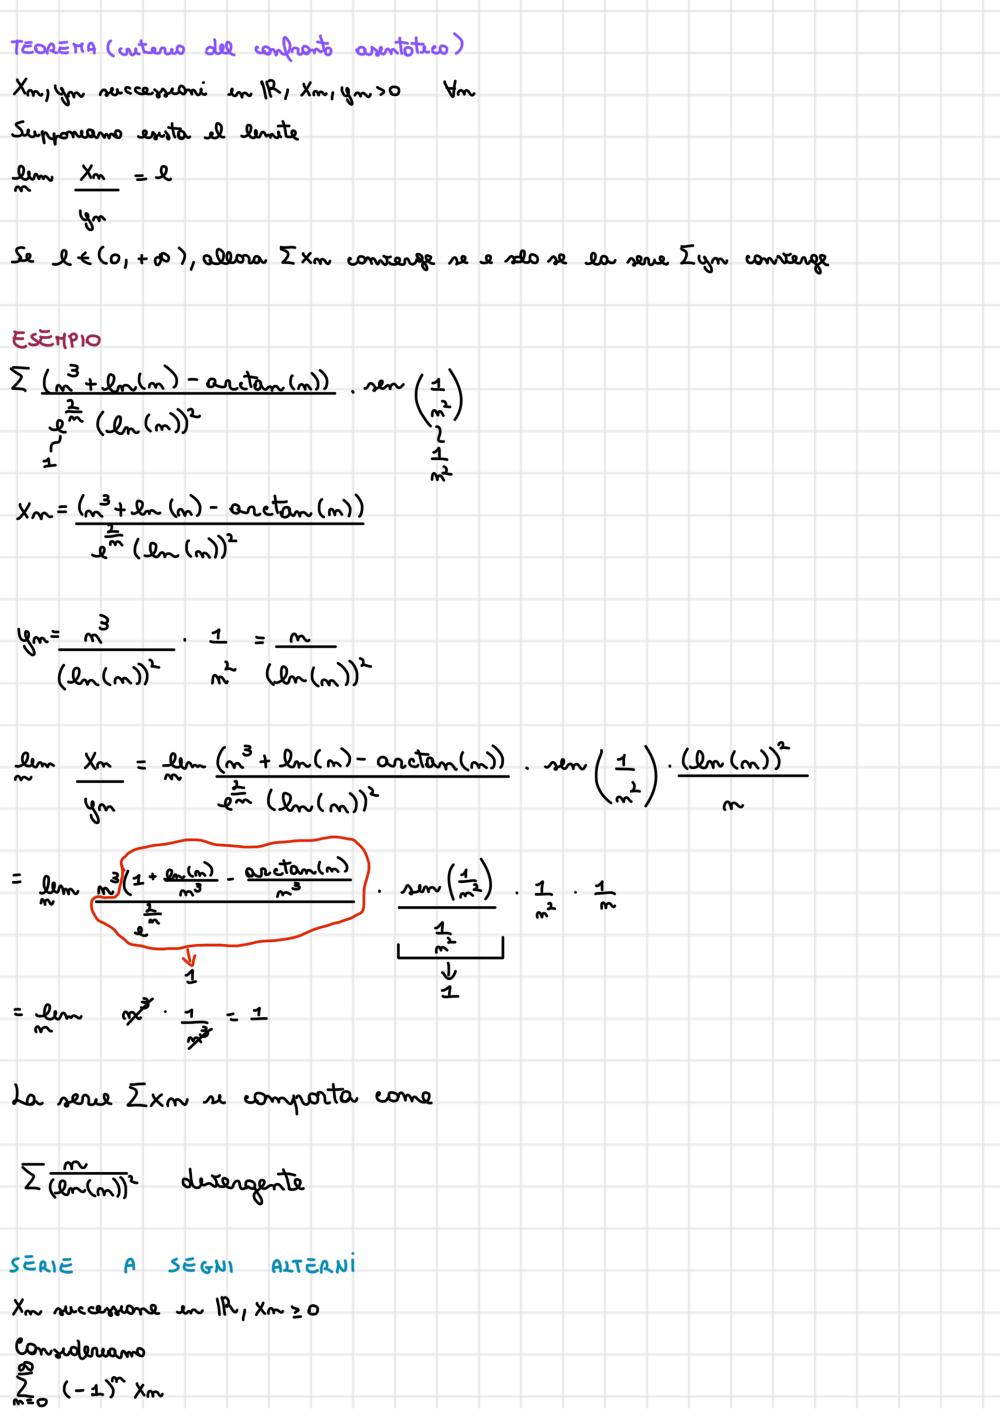 TEOREMA (criterio del confronto asintotico)
Xn, yn successioni in ℝ, Xn, yn > 0 ∀n
Supponiamo esista il limite
lim_n Xn/yn = l
Se l ∈ (0, +∞), allora Σ xn converge se e solo se la serie Σ yn converge
ESEMPIO
Σ (n³ + ln(n) - arctan(n)) / (e^(2/n) (ln(n))²) · sen (1/n²)
~ 1 ~ 1/n²
Xn = (n³ + ln(n) - arctan(n)) / (e^(2/n) (ln(n))²)
yn = n³/(ln(n))² · 1/n² = n/(ln(n))²
lim_n Xn/yn = lim_n (n³ + ln(n) - arctan(n)) / (e^(2/n) (ln(n))²) · sen (1/n²) · (ln(n))²/n
= lim_n n³(1 + ln(n)/n³ - arctan(n)/n³ / e^(2/n) · sen(1/n²) / (1/n²) · 1/n² · 1/n
↓ 1 ↓ 1
= lim_n n³ · 1/n³ = 1
La serie Σ xn si comporta come
Σ n/(ln(n))² divergente
SERIE A SEGNI ALTERNI
Xn successione in ℝ, Xn ≥ 0
Consideriamo
Σ_{n=0}^{∞} (-1)^n Xn